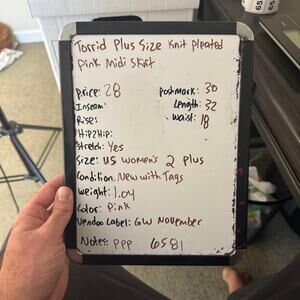 Torrid Plus Size Knit Pleated
Pink Midi Skirt
Price: 28
Poshmark: 30
Inseam:
Length: 32
Rise:
Waist: 18
Hip2Hip:
Stretch: Yes
Size: US Women's 2 Plus
Condition: New with Tags
Weight: 1.04
Color: Pink
Vendoo Label: GW November
Notes: PPP 6581